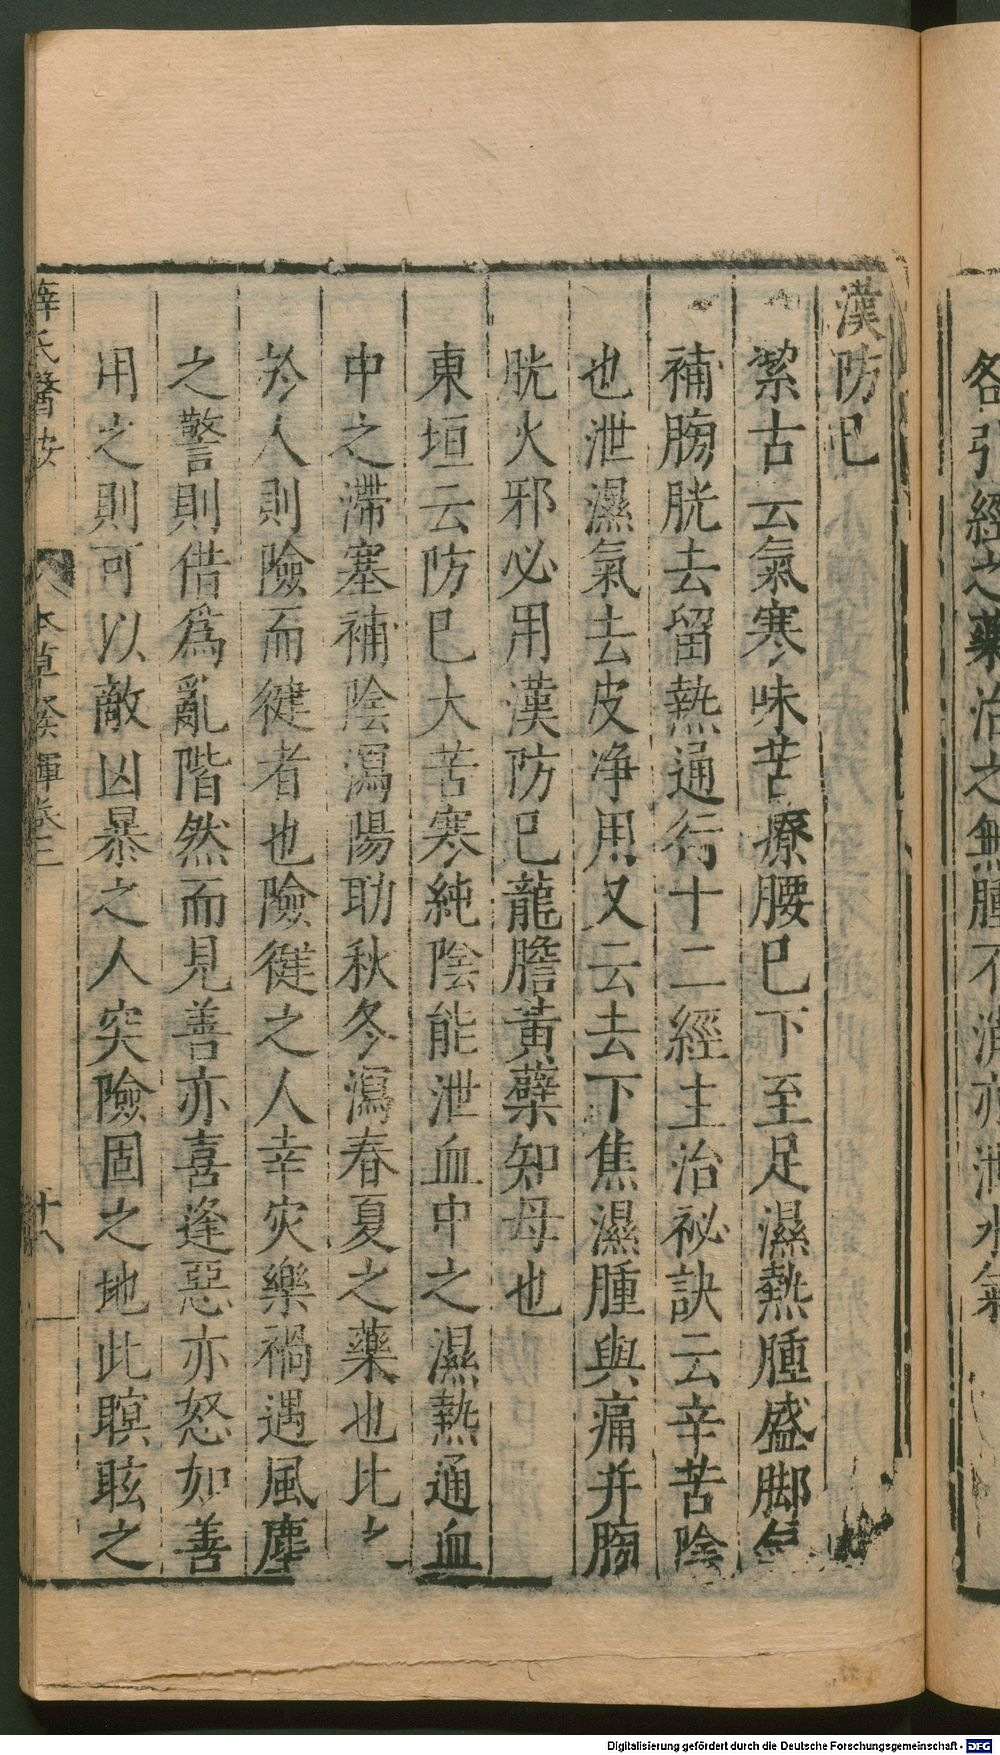 各引經之藥治之無腫不消亦泄水氣
漢防巳
潔古云氣寒味苦療腰巳下至足濕熱腫盛脚氣
補膀胱去留熱通行十二經主治祕訣云辛苦陰
也泄濕氣去皮净用又云去下焦濕腫與痛并膀
胱火邪必用漢防巳龍膽黃蘗知母也
東垣云防巳大苦寒純陰能泄血中之濕熱通血
中之滯塞補陰瀉陽助秋冬瀉春夏之藥也比之
於人則險而健者也險健之人幸灾樂禍遇風塵
之警則借爲亂階然而見善亦喜逢惡亦怒如善
用之則可以敵凶暴之人突險固之地此瞑眩之
薛氏醫按 本草發揮卷三 十八
Digitalisierung gefördert durch die Deutsche Forschungsgemeinschaft - DFG